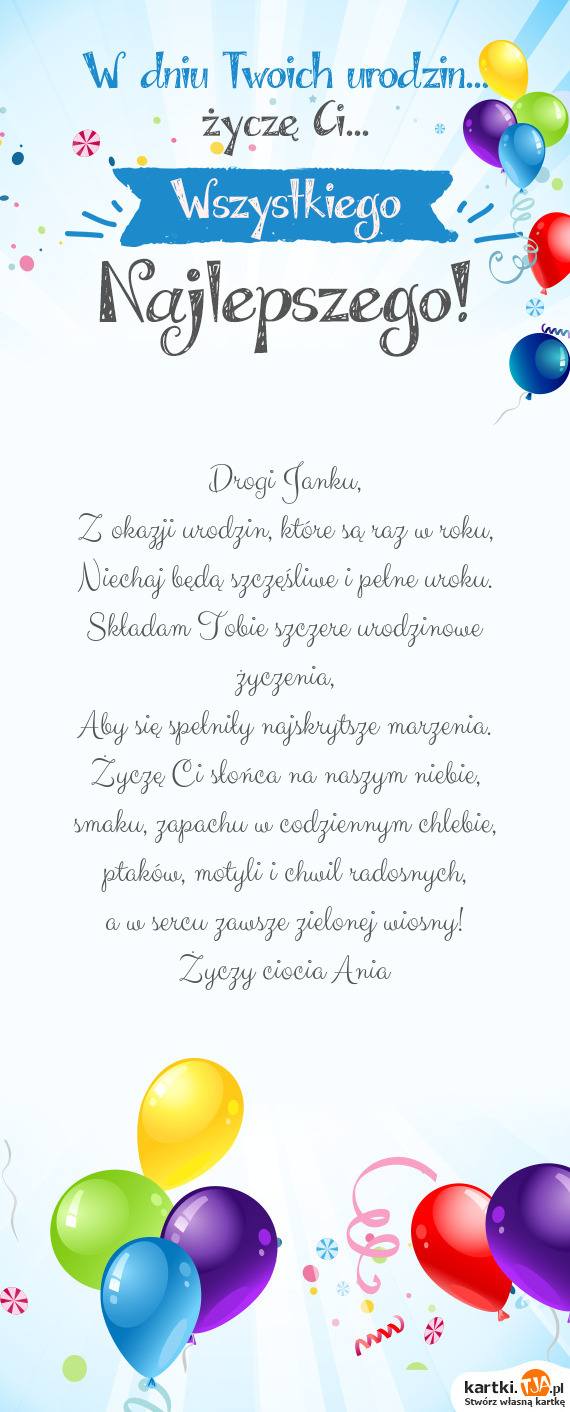 W dniu Twoich urodzin...
życzę Ci...
Wszystkiego
Najlepszego!
Drogi Janku,
Z okazji urodzin, które są raz w roku,
Niechaj będą szczęśliwe i pełne uroku.
Składam Tobie szczere urodzinowe
życzenia,
Aby się spełniły najskrytsze marzenia.
Życzę Ci słońca na naszym niebie,
smaku, zapachu w codziennym chlebie,
ptaków, motyli i chwil radosnych,
a w sercu zawsze zielonej wiosny!
Życzy ciocia Ania
kartki.TJA.pl
Stwórz własną kartkę